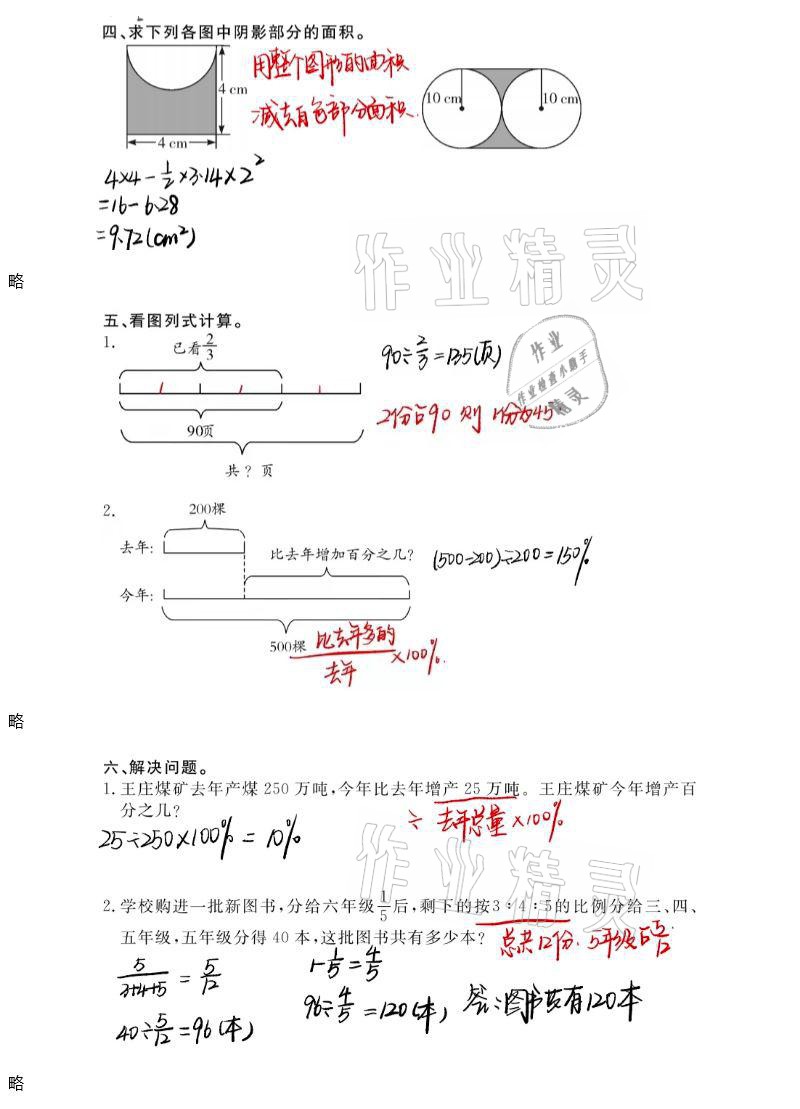 四、求下列各图中阴影部分的面积。
4 cm
4 cm
用整个图形的面积
减去白色部分面积.
10 cm
10 cm
4×4-1/2×3.14×2²
=16-6.28
=9.72(cm²)
作业精灵
略
五、看图列式计算。
1.
已看2/3
90页
共？页
90÷2/3=135(页)
2份占90 则 1份为45
作业
作业检查小助手
精灵
2.
200棵
去年:
比去年增加百分之几?
今年:
500棵
(500-200)÷200=150%
比去年多的/去年 ×100%.
略
六、解决问题。
1. 王庄煤矿去年产煤 250 万吨,今年比去年增产 25 万吨。王庄煤矿今年增产百
分之几?
÷ 去年总量×100%
25÷250×100% = 10%
作业精灵
2. 学校购进一批新图书,分给六年级1/5后,剩下的按3∶4∶5的比例分给三、四、
五年级,五年级分得 40 本,这批图书共有多少本?
总共12份. 5年级占5/12
5/3+4+5 = 5/12
1-1/5=4/5
40÷5/12=96(本)
96÷4/5=120(本)
答:图书共有120本
略